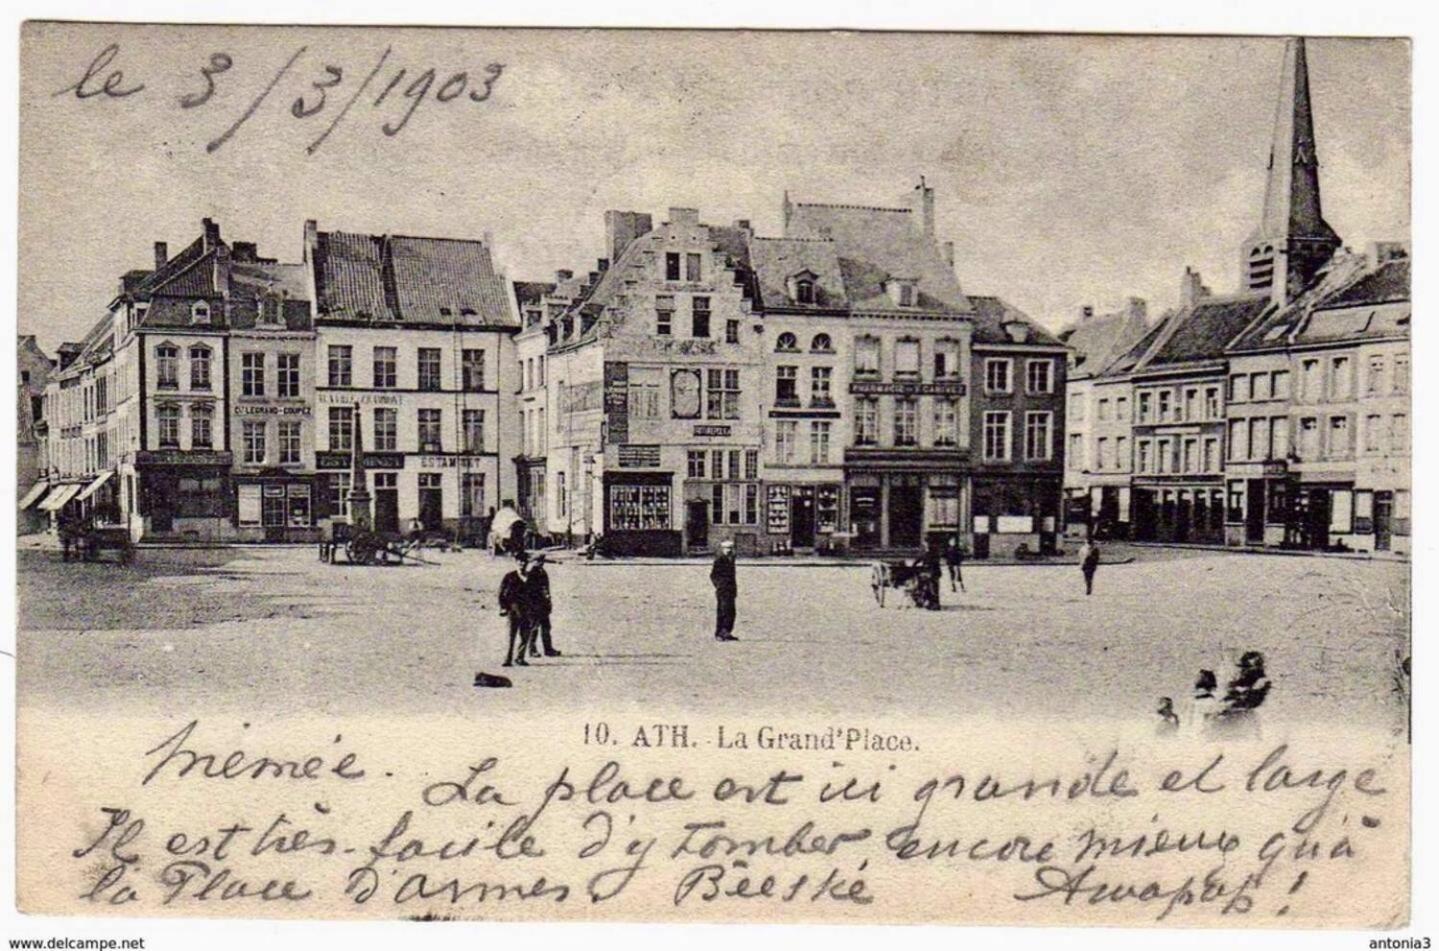 le 3/3/1903
Cl. LEGRAND-COUPEZ
ESTAMINET
PHARMACIE
10. ATH. - La Grand'Place.
Mémée. La place est ici grande et large
Il est très-facile d'y tomber, encore mieux qu'à
la Place d'armes. Bêeské !
www.delcampe.net
antonia3